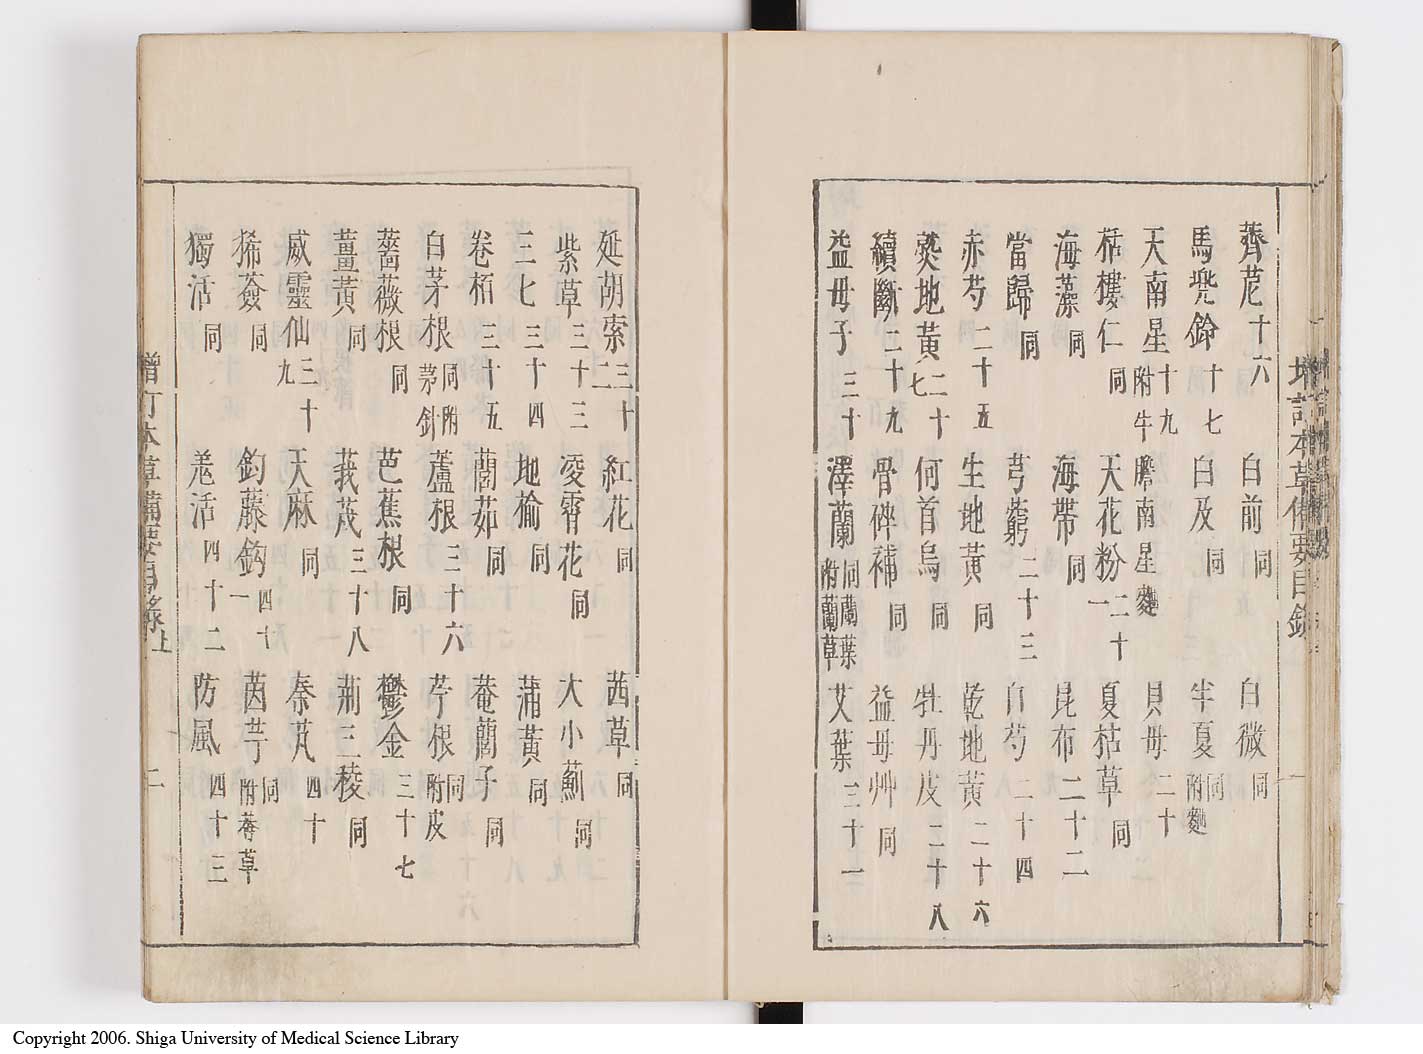 薺苨十六 白前同 白微同
馬兜鈴十七 白及同 半夏同附麯
天南星十九附牛膽南星麯 貝母二十
栝樓仁同 天花粉二十一 夏枯草同
海藻同 海帶同 昆布二十二
當歸同 芎藭二十三 白芍二十四
赤芍二十五 生地黃同 乾地黃二十六
熟地黃二十七 何首烏同 牡丹皮二十八
續斷二十九 骨碎補同 益母艸同
益母子三十 澤蘭同附蘭葉蘭草 艾葉三十一
延胡索三十二 紅花同 茜草同
紫草三十三 凌霄花同 大小薊同
三七三十四 地榆同 蒲黃同
卷栢三十五 䕡茹同 菴䕡子同
白茅根同附茅針 蘆根三十六 苧根同附皮
薔薇根同 芭蕉根同 鬱金三十七
薑黃同 莪茂三十八 荊三稜同
威靈仙三十九 天麻同 秦艽四十
豨薟同 鈎藤鈎四十一 茵芋同附莓草
獨活同 羗活四十二 防風四十三
增訂本草備要目錄 上 二
Copyright 2006. Shiga University of Medical Science Library